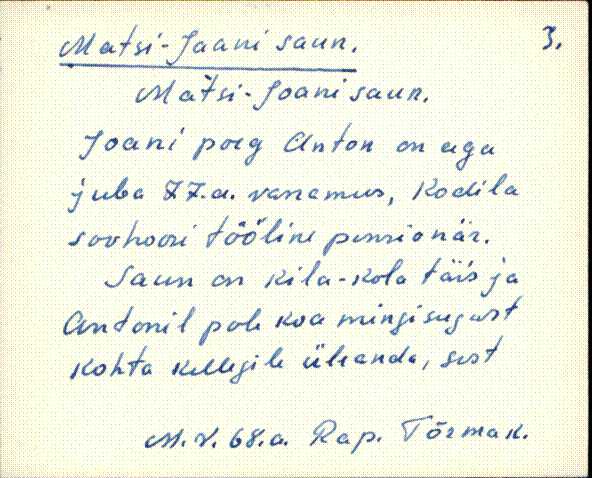 Matsi-Jaani saun. 3.
Matsi-Joani saun.
Joani poeg Anton on aga
juba 77.a. vanamus, Kodila
sovhoosi tööline pensionär.
Saun on kila-kola täis ja
Antonil pole koa mingisugust
kohta kellegile üleanda, sest
M.V. 68.a. Rap. Tõrmak.